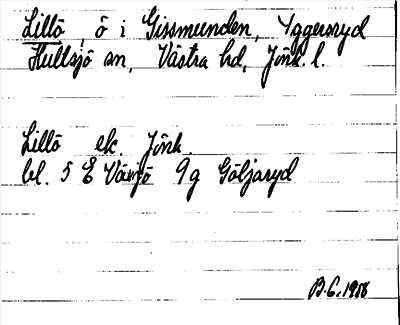 Lillö, ö i Gissmunden, Yggersryd
Hullsjö sn, Västra hd, Jönk. l.
Lillö ek. Jönk.
bl. 5 E 9g Göljaryd
1958